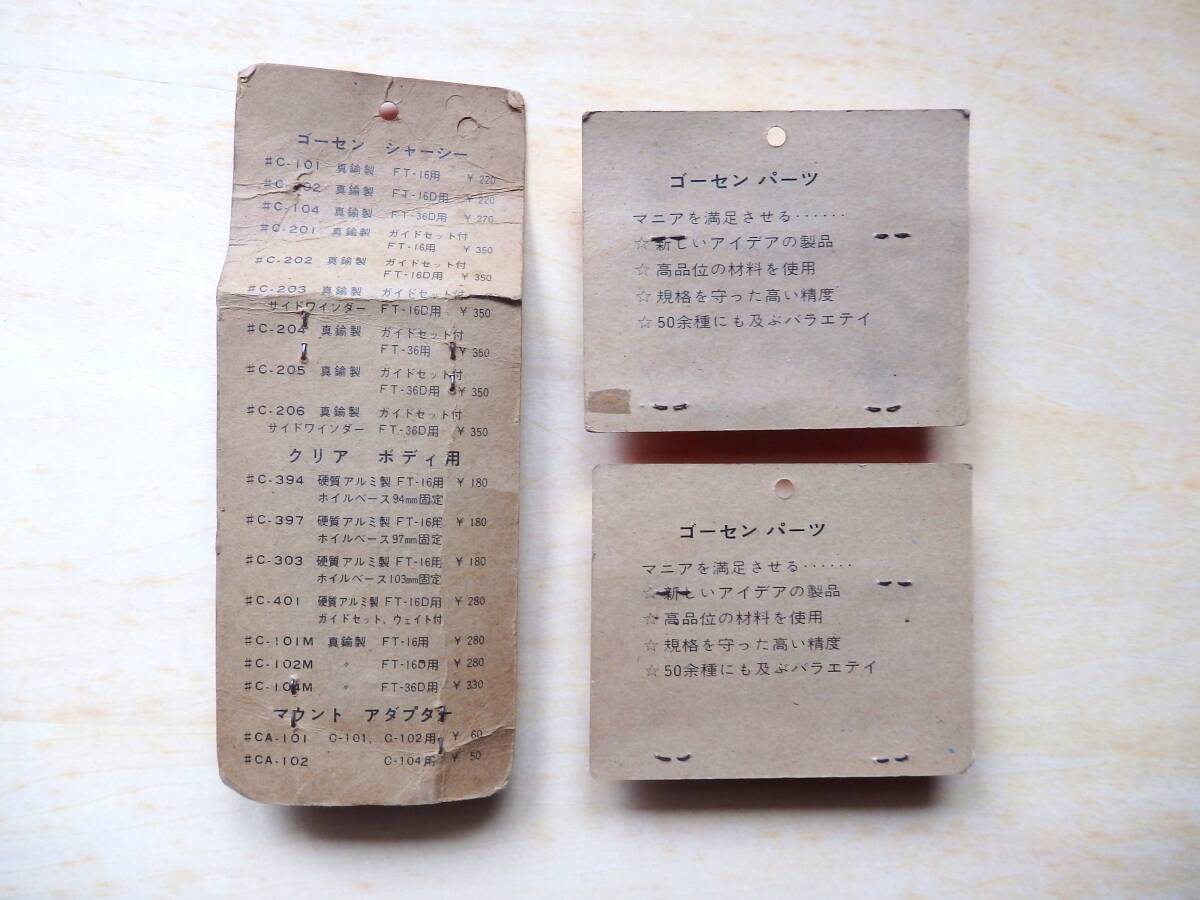 ゴーセン シャーシー
#C-101 真鍮製 FT-16用 ¥220
#C-102 真鍮製 FT-16D用 ¥220
#C-104 真鍮製 FT-36D用 ¥270
#C-201 真鍮製 ガイドセット付
FT-16用 ¥350
#C-202 真鍮製 ガイドセット付
FT-16D用 ¥350
#C-203 真鍮製 ガイドセット付
サイドワインダー FT-16D用 ¥350
#C-204 真鍮製 ガイドセット付
FT-36用 ¥350
#C-205 真鍮製 ガイドセット付
FT-36D用 ¥350
#C-206 真鍮製 ガイドセット付
サイドワインダー FT-36D用 ¥350
クリア ボディ用
#C-394 硬質アルミ製 FT-16用 ¥180
ホイルベース94mm固定
#C-397 硬質アルミ製 FT-16用 ¥180
ホイルベース97mm固定
#C-303 硬質アルミ製 FT-16用 ¥180
ホイルベース103mm固定
#C-401 硬質アルミ製 FT-16D用 ¥280
ガイドセット、ウェイト付
#C-101M 真鍮製 FT-16用 ¥280
#C-102M 〃 FT-16D用 ¥280
#C-104M 〃 FT-36D用 ¥330
マウント アダプター
#CA-101 C-101, C-102用 ¥60
#CA-102 C-104用 ¥50
ゴーセン パーツ
マニアを満足させる……
☆新しいアイデアの製品
☆高品位の材料を使用
☆規格を守った高い精度
☆50余種にも及ぶバラエテイ
ゴーセン パーツ
マニアを満足させる……
☆新しいアイデアの製品
☆高品位の材料を使用
☆規格を守った高い精度
☆50余種にも及ぶバラエテイ